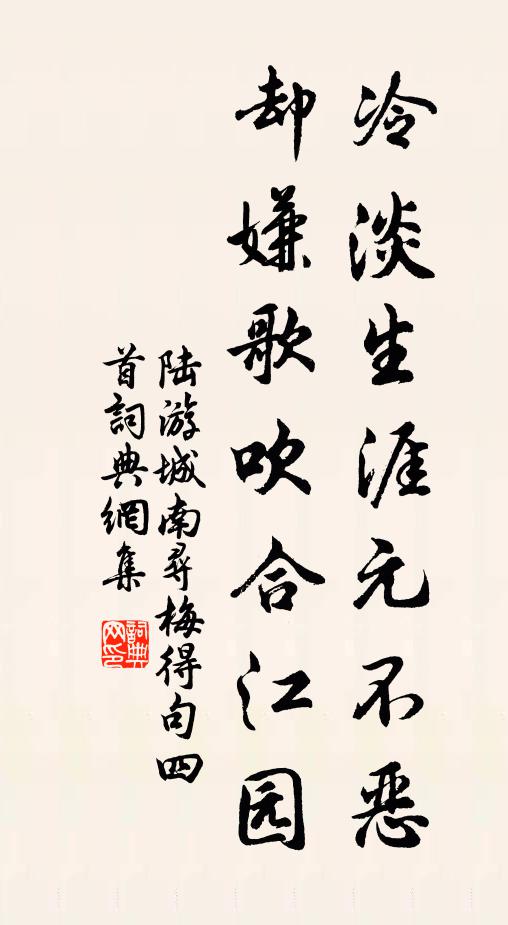 冷淡生涯元不恶
却嫌歌吹合江园
陆游城南寻梅得句四
首詞典網集
詞典网印